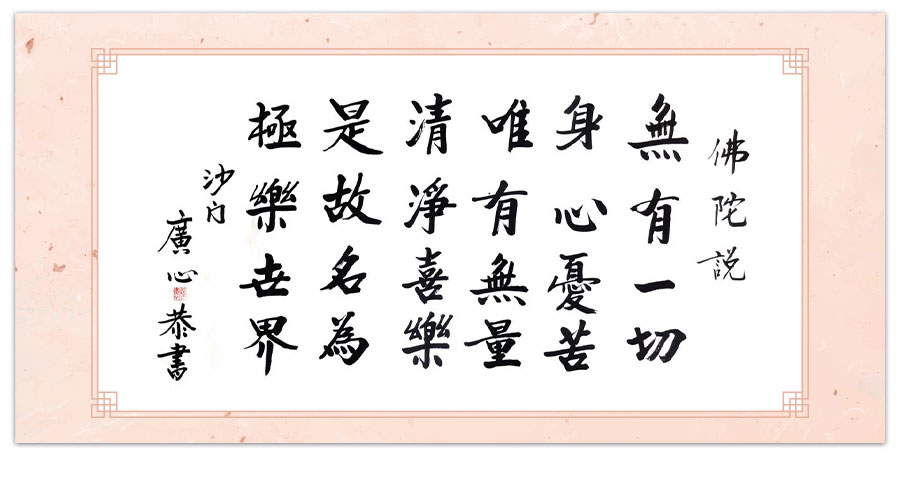 佛陀説
無有一切
身心憂苦
唯有無量
清淨喜樂
是故名為
極樂世界
沙门
廣心恭書